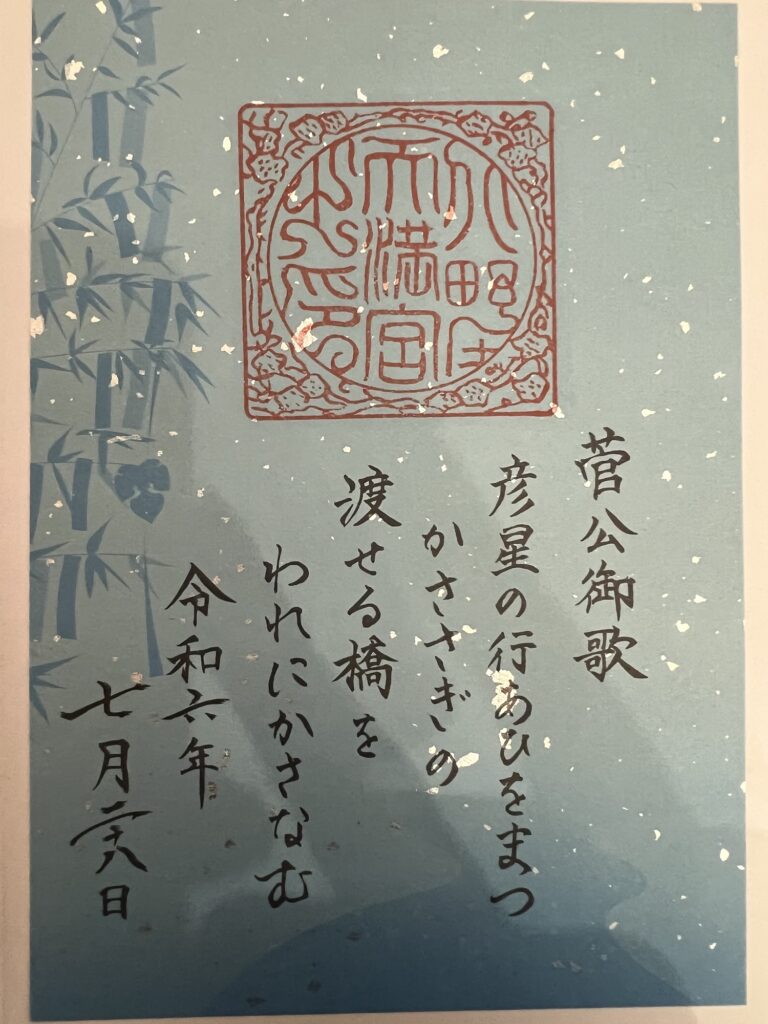 天満宮
之印
菅公御歌
彦星の行あひをまつ
かさゝぎの
渡せる橋を
われにかさなむ
令和六年
七月二十八日